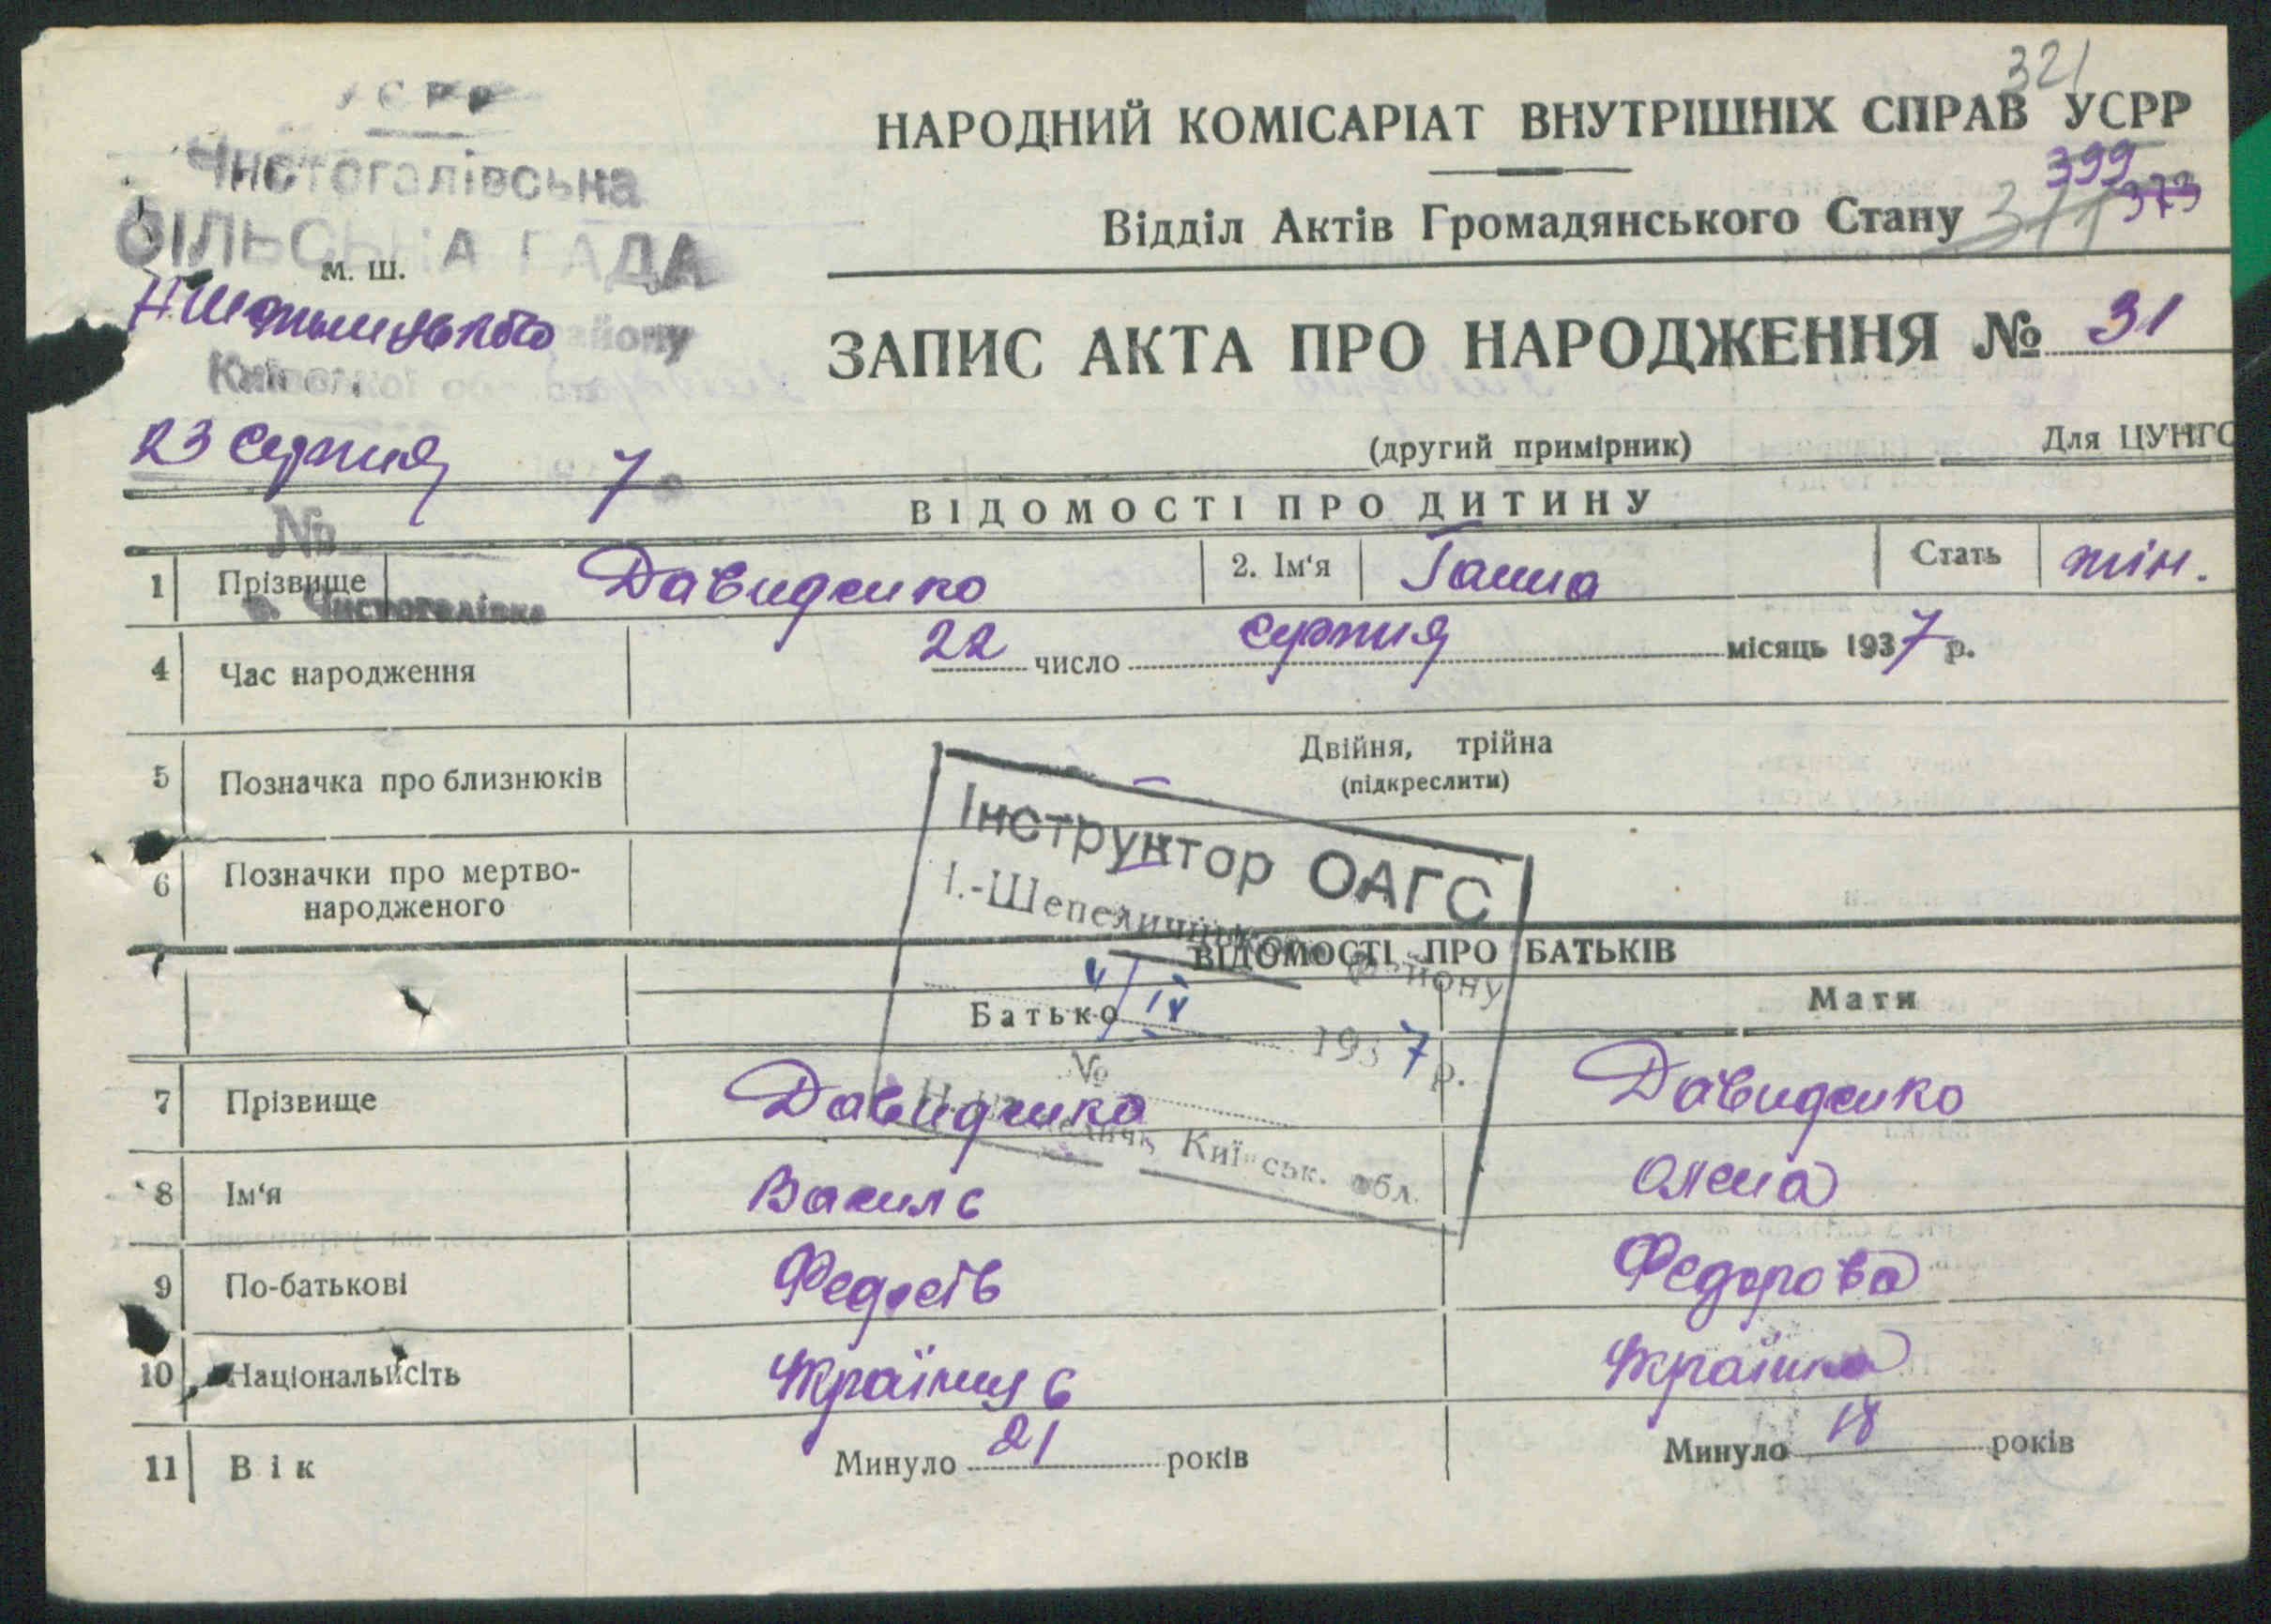 321
УСРР
НАРОДНИЙ КОМІСАРІАТ ВНУТРІШНІХ СПРАВ УСРР
399
373
311
Чистогалівська
СІЛЬСЬКА РАДА
м. ш.
Відділ Актів Громадянського Стану
району
ЗАПИС АКТА ПРО НАРОДЖЕННЯ № 31
Київської
23 серпня 7
(другий примірник) Для ЦУНГО
№
ВІДОМОСТІ ПРО ДИТИНУ
1 Прізвище Давиденко 2. Ім'я Ганна Стать жін.
с. Чистогалівка
4 Час народження 22 число серпня місяць 1937 р.
5 Позначка про близнюків Двійня, трійна
(підкреслити)
Інструктор ОАГС
6 Позначки про мертво-
народженого
І.-Шепелицького району
ВІДОМОСТІ ПРО БАТЬКІВ
Батько Мати
1937 р.
№
7 Прізвище Давиденко Давиденко
Київськ. обл.
8 Ім'я Василь Олена
9 По-батькові Федосів Федорова
10 Національність Українець Українка
11 Вік Минуло 21 років Минуло 18 років